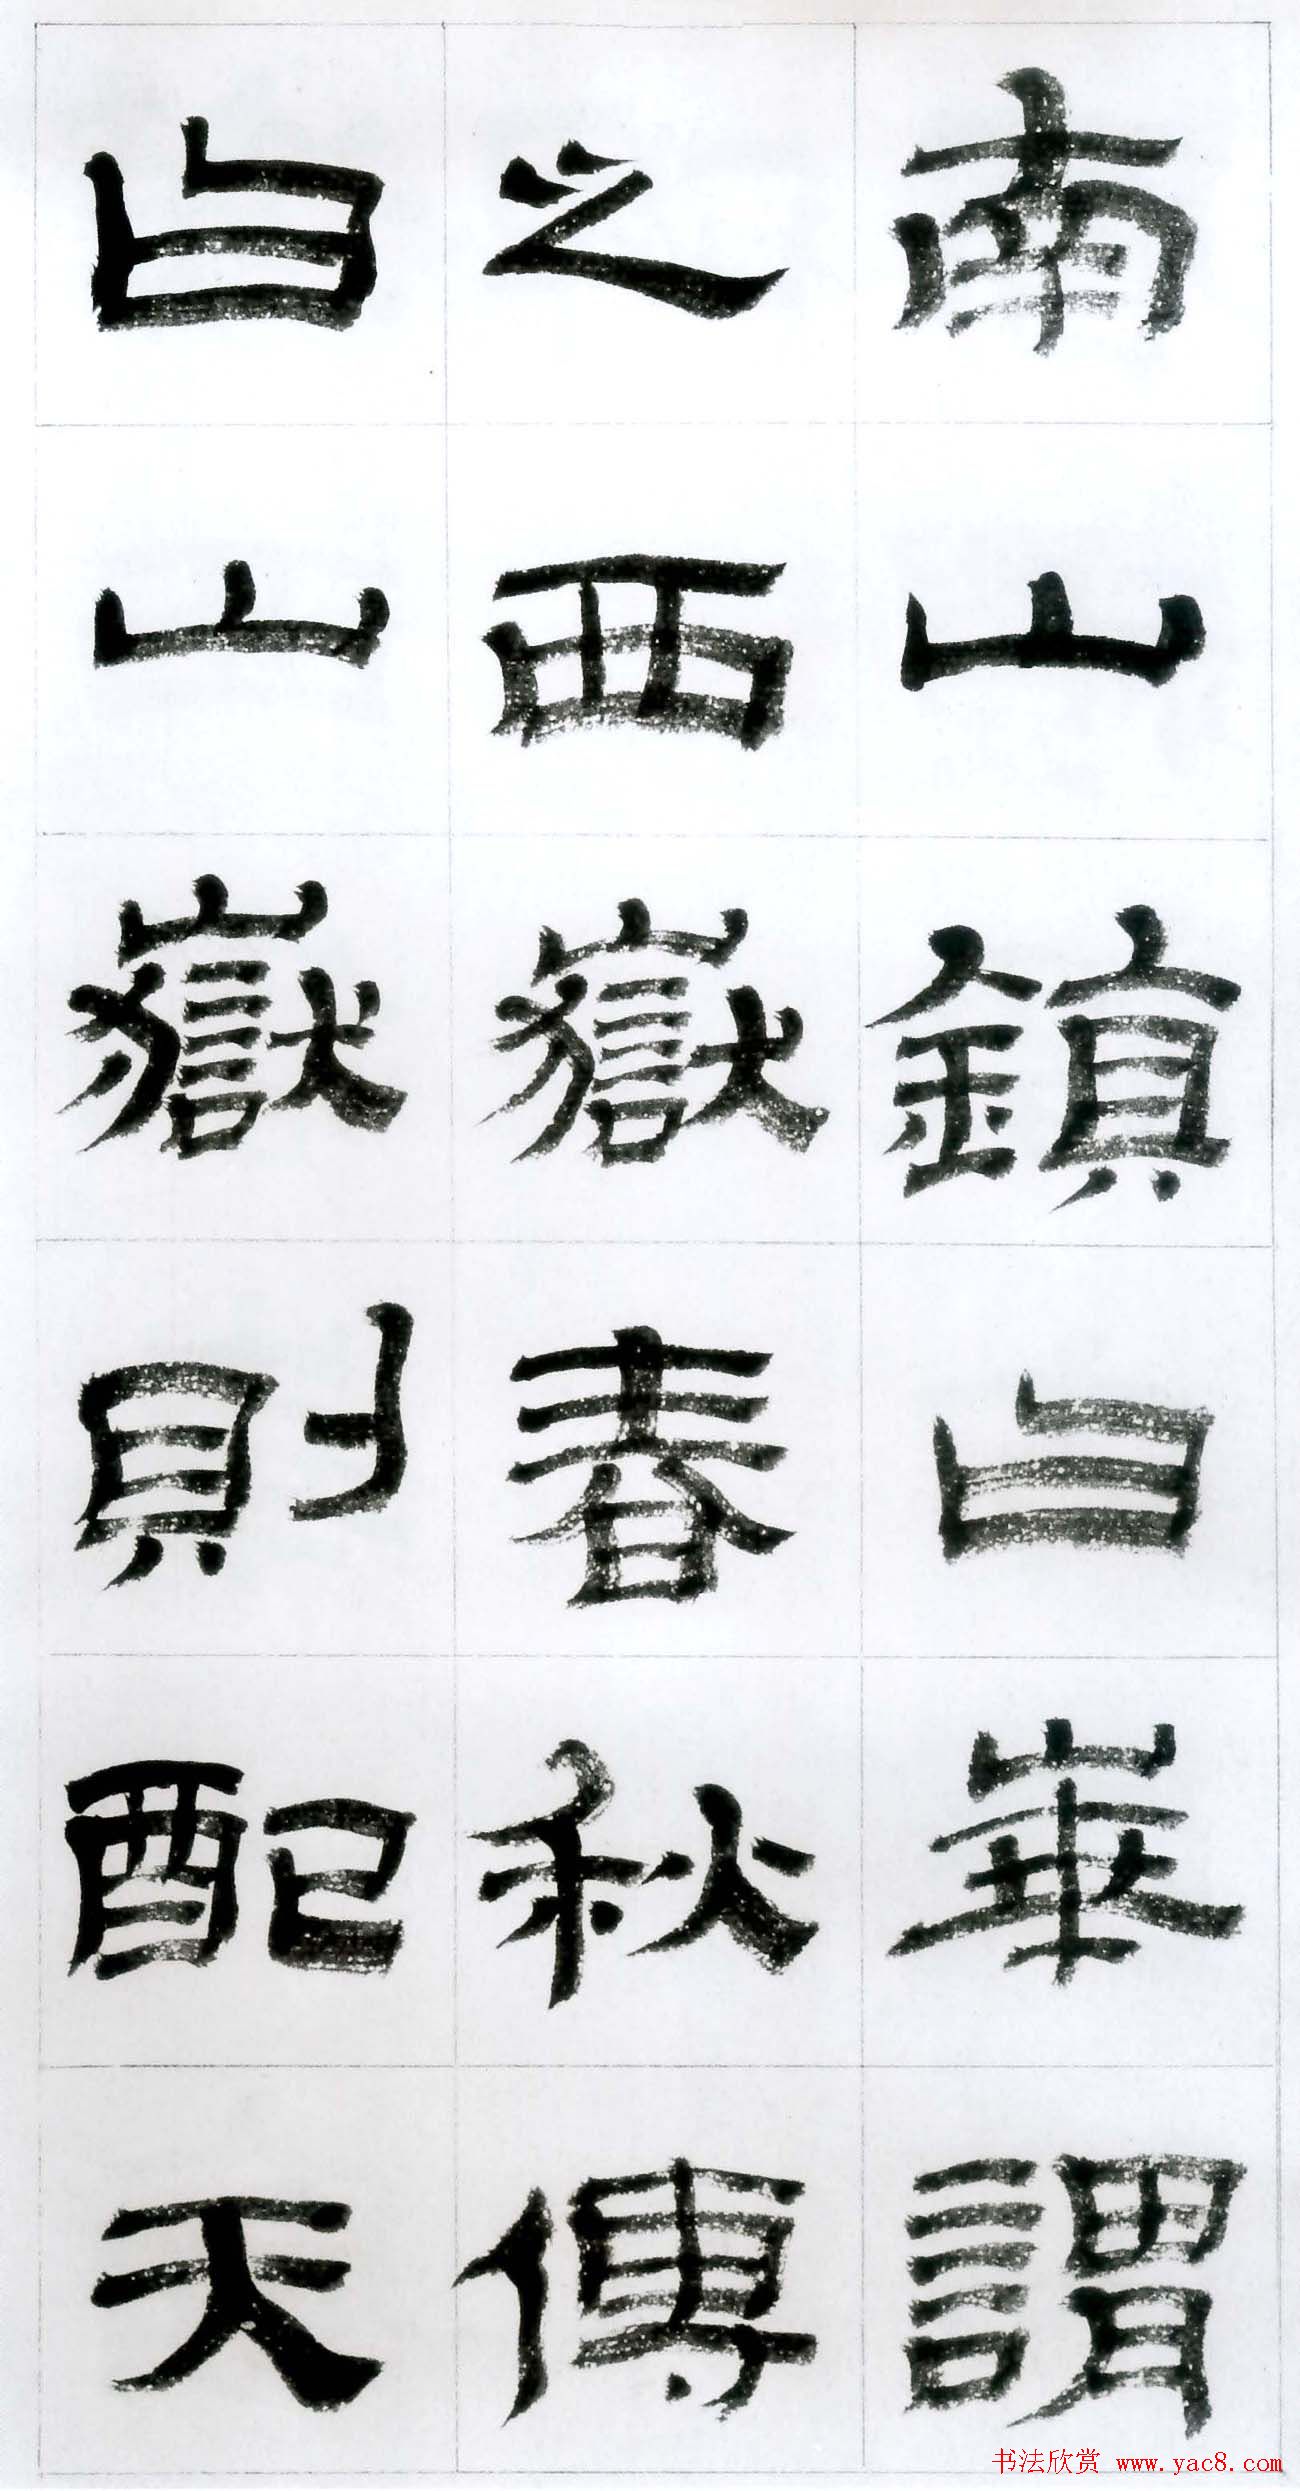 南山鎮曰崋謂
之西嶽春秋傳
曰山嶽則配天
书法欣赏 www.yac8.com